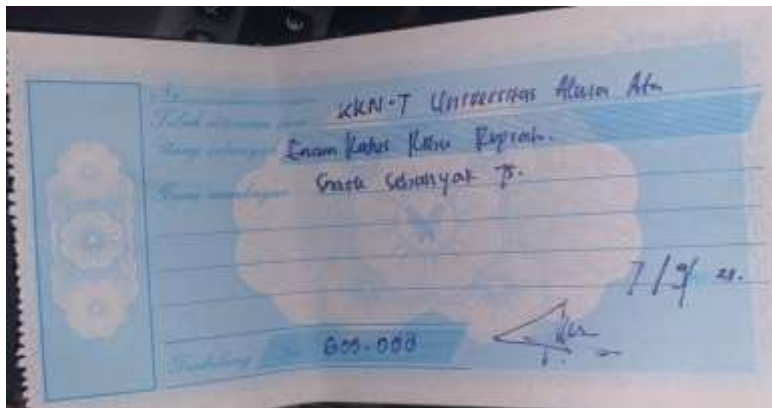 No.
Telah terima dari KKN-T Universitas Alma Ata
Uang sejumlah Enam Ratus Ribu Rupiah.
Guna membayar Snack sebanyak 75.
7/9/21.
Terbilang 600.000